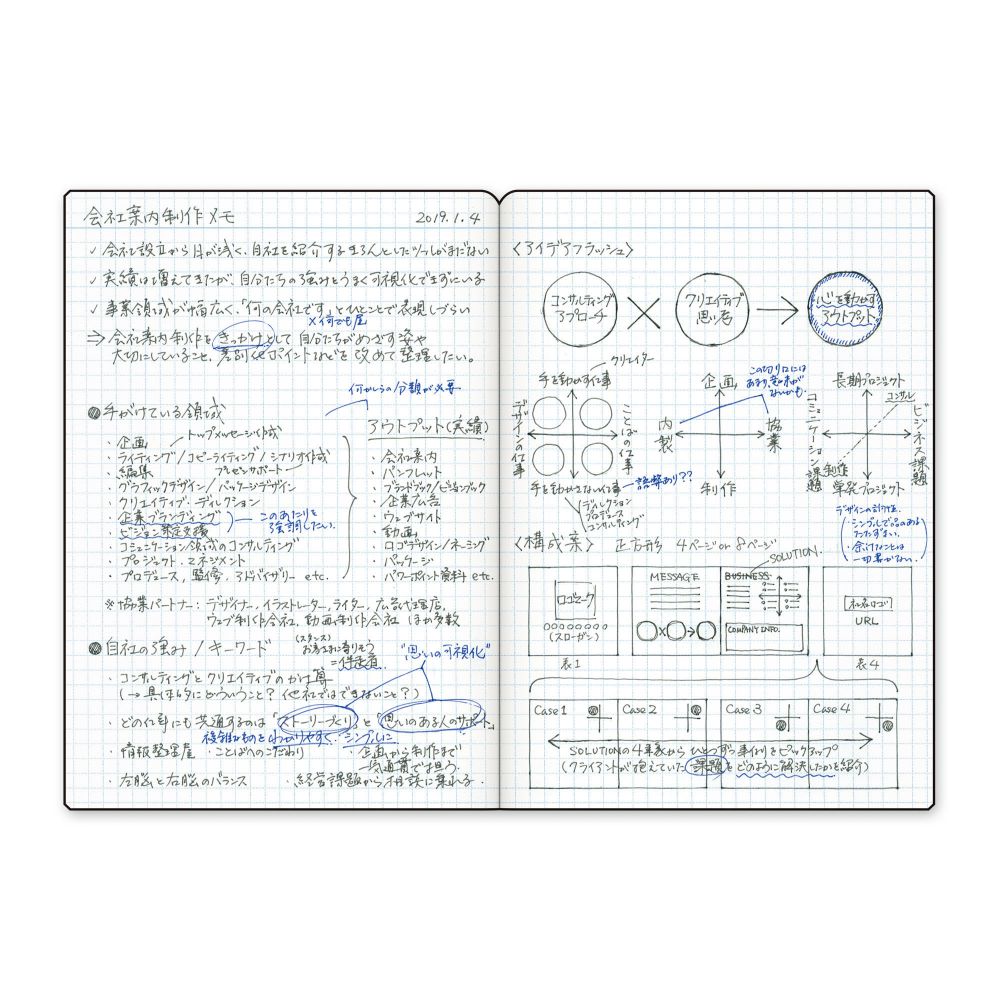 会社案内制作メモ 2019.1.4
✓ 会社設立から日が浅く、自社を紹介するきちんとしたツールがまだない
✓ 実績は増えてきたが、自分たちの強みをうまく可視化できずにいる
✓ 事業領域が幅広く、「何の会社です」とひとことで表現しづらい
×何でも屋
⇒ 会社案内制作をきっかけとして 自分たちがめざす姿や
大切にしていること、差別化ポイントなどを改めて整理したい。
何かしらの分類が必要
●手がけている領域
・企画 トップメッセージ作成
・ライティング/コピーライティング/シナリオ作成
・編集 プレゼンサポート
・グラフィックデザイン/パッケージデザイン
・クリエイティブ・ディレクション
・企業ブランディング
・ビジョン策定支援
このあたりを
強調したい。
・コミュニケーション領域のコンサルティング
・プロジェクト・マネジメント
・プロデュース, 監修, アドバイザリー etc.
アウトプット(実績)
・会社案内
・パンフレット
・ブランドブック/ビジョンブック
・企業広告
・ウェブサイト
・動画
・ロゴデザイン/ネーミング
・パッケージ
・パワーポイント資料 etc.
※協業パートナー: デザイナー, イラストレーター, ライター, 広告代理店,
ウェブ制作会社, 動画制作会社 ほか多数
●自社の強み/キーワード
(スタンス)
お客さまに寄りそう
=伴走者
"思いの可視化"
・コンサルティングとクリエイティブのかけ算
(→具体的にどういうこと? 他社ではできないこと?)
・どの仕事にも共通するのは「ストーリーづくり」と「思いのある人のサポート」
複雑なものをわかりやすく、シンプルに
・情報整理屋 ・ことばへのこだわり ・企画から制作まで
一気通貫で担う。
・左脳と右脳のバランス ・経営課題から相談に乗れる
〈アイデアフラッシュ〉
コンサルティング
アプローチ
×
クリエイティブ
思考
→
心を動かす
アウトプット
クリエイター
手を動かす仕事
デザインの仕事
ことばの仕事
手を動かさない仕事
語弊あり??
ディレクション
プロデュース
コンサルティング
企画
内製
協業
制作
この切り口には
あまり意味が
ないかも.
長期プロジェクト
コンサル
コミュニケーション課題
ビジネス課題
制作
単発プロジェクト
デザインの方向性
・シンプルで品のある
・余計なことは
一切書かない.
〈構成案〉 正方形 4ページ or 8ページ
SOLUTION.
ロゴマーク
○○○○○○○○
(スローガン)
表1
MESSAGE
○×○→○
BUSINESS
COMPANY INFO.
社名ロゴ
URL
表4
Case 1 Case 2 Case 3 Case 4
SOLUTIONの4事象から ひとつずつ事例をピックアップ
(クライアントが抱えていた課題をどのように解決したかを紹介)